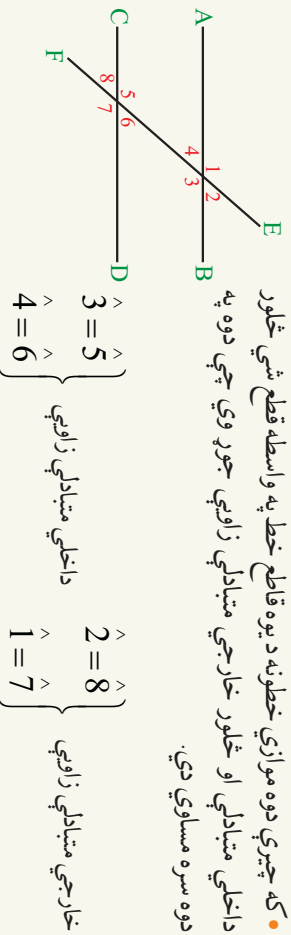 • که چیري دوه موازي خطونه د یوه قاطع خط په واسطه قطع شي څلور
داخلي متبادلي او څلور خارجي متبادلي زاویې جوړ وي چې دوه په
دوه سره مساوي دي.
A B
C D
E
F
1 2
4 3
5 6
8 7
3̂ = 5̂
4̂ = 6̂ } داخلي متبادلې زاویې
2̂ = 8̂
1̂ = 7̂ } خارجي متبادلې زاویې